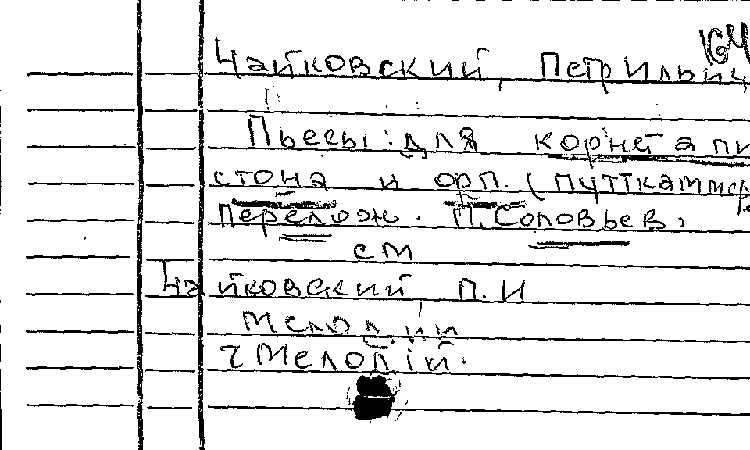 164
Чайковский, Петр Ильич
Пьесы: для корнета пи
стона и орп. (Путткаммер,
перелож. П. Соловьев,
см
Чайковский П.И
Мелодии
7 Мелодій.